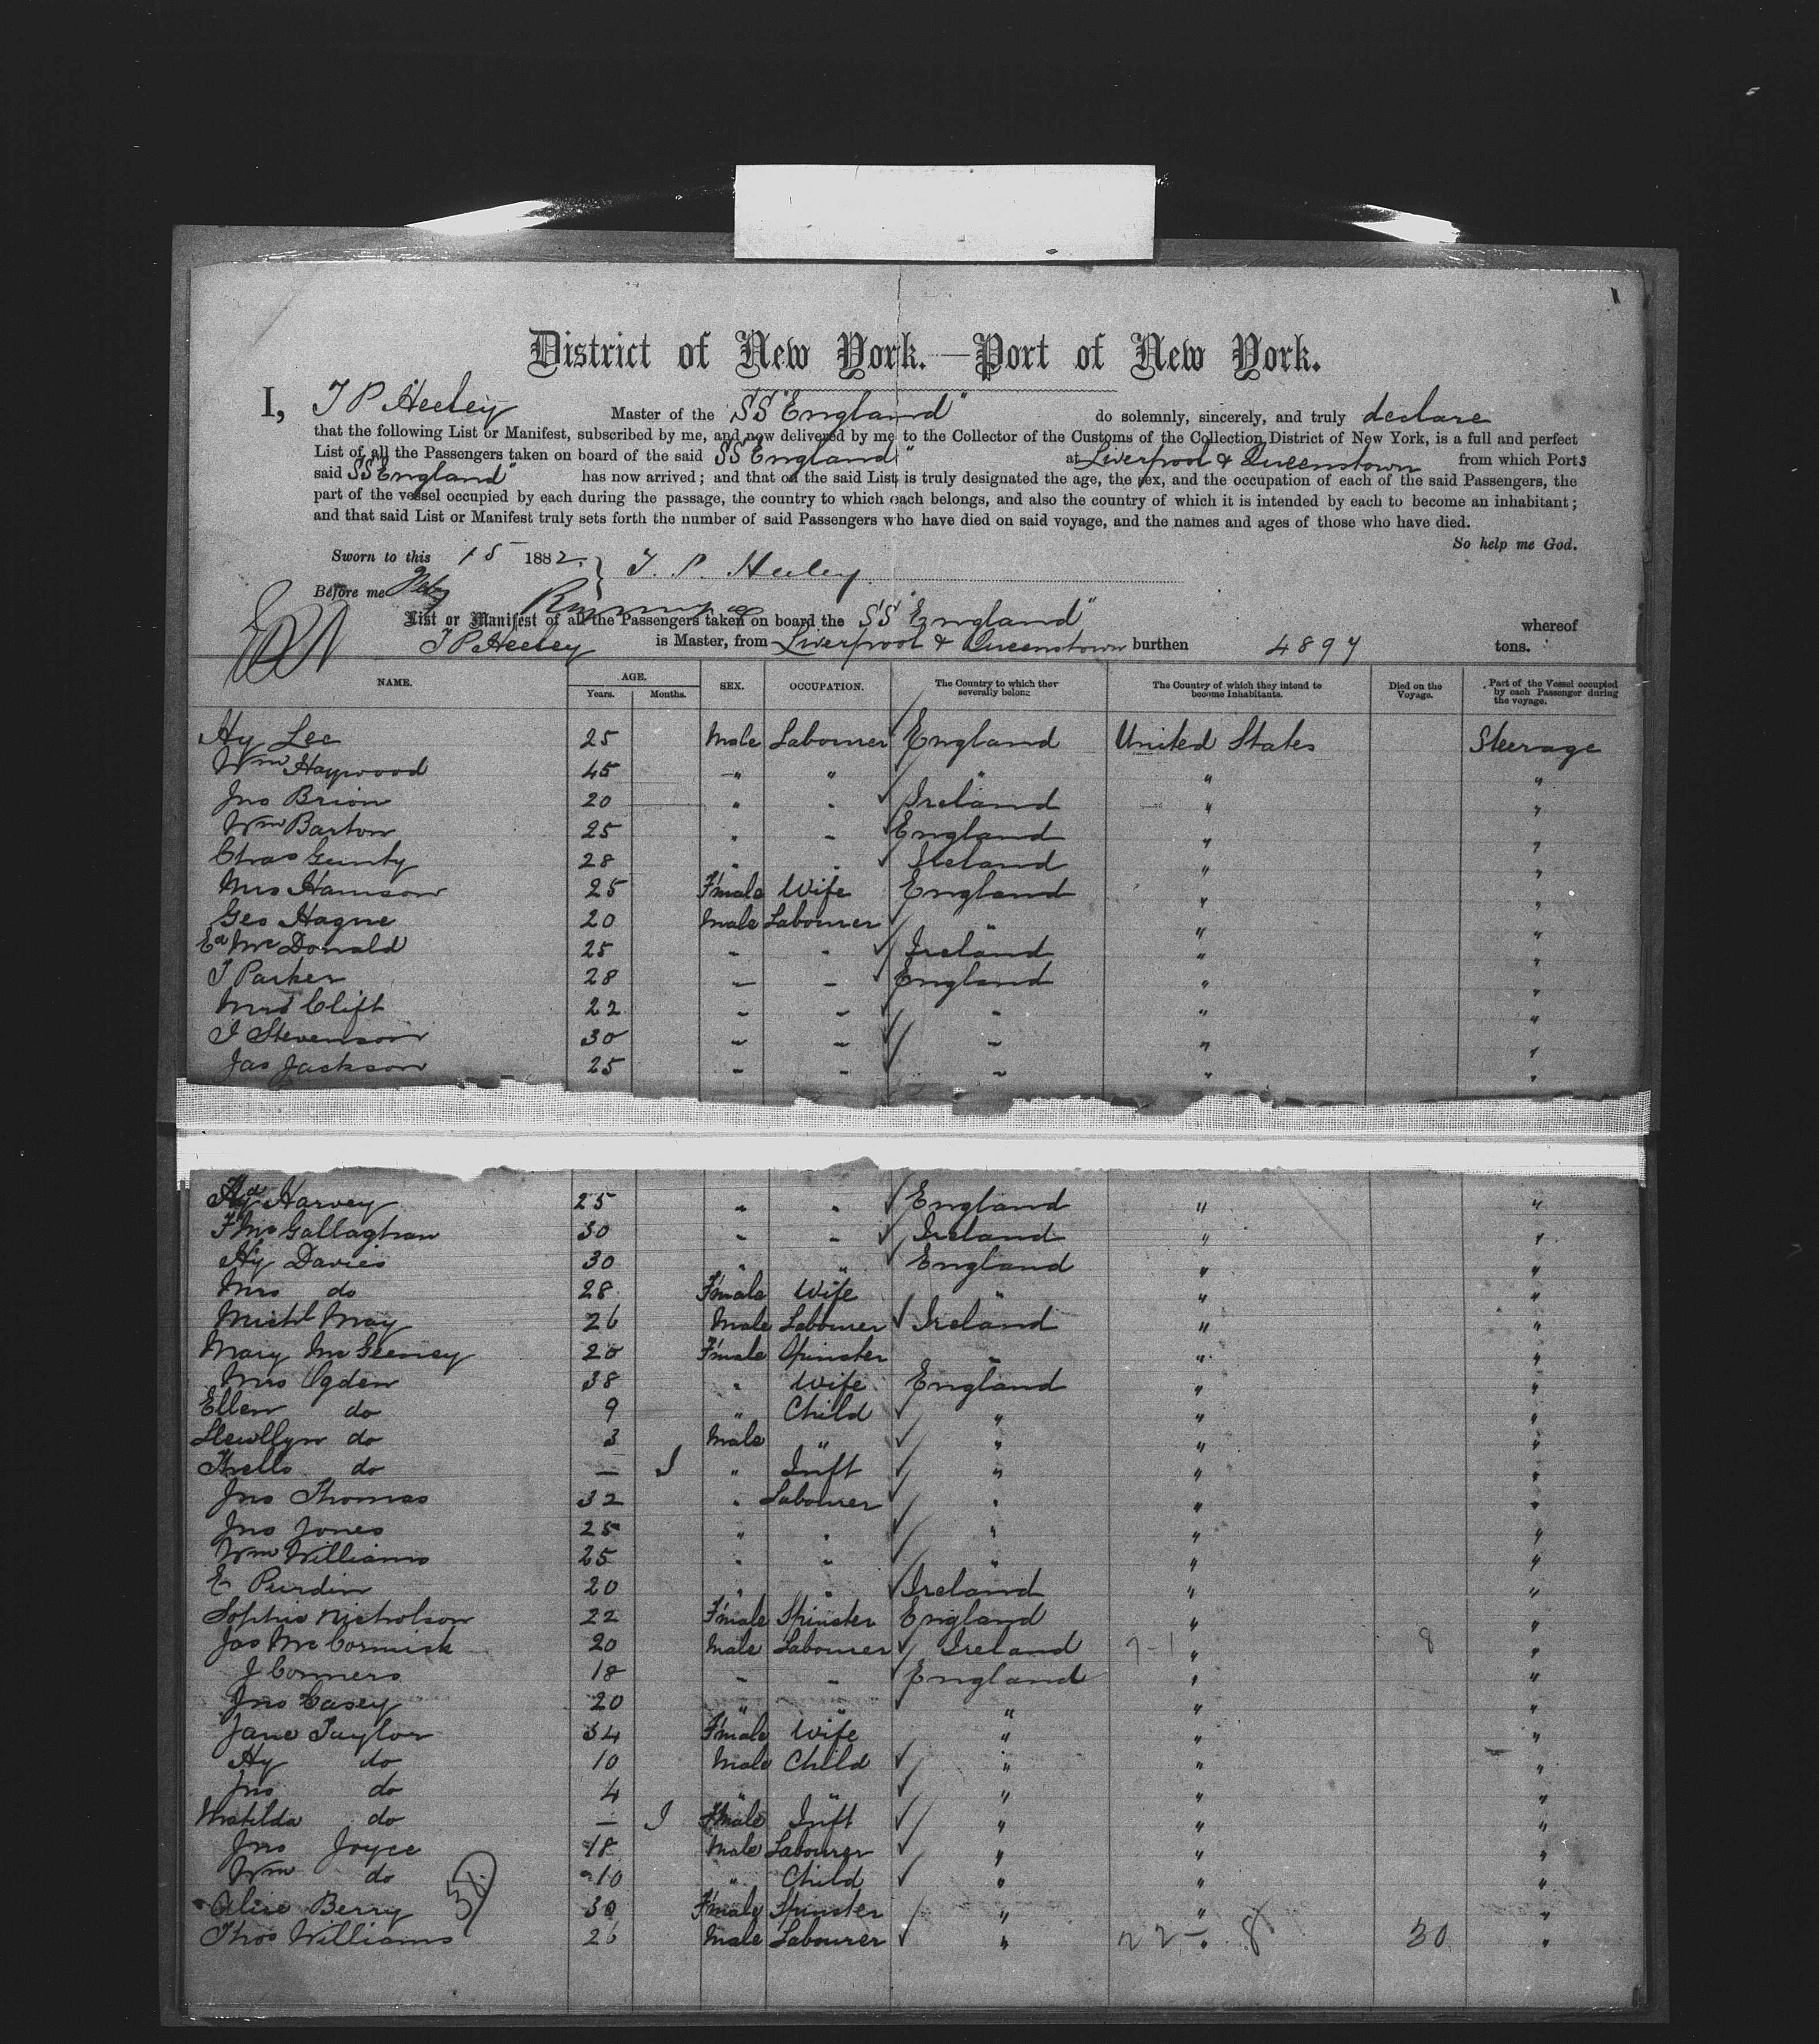 District of New York.—Port of New York.
I, T P Heeley Master of the SS "England" do solemnly, sincerely, and truly declare
that the following List or Manifest, subscribed by me, and now delivered by me to the Collector of the Customs of the Collection District of New York, is a full and perfect
List of all the Passengers taken on board of the said SS England" at Liverpool & Queenstown from which Ports
said SS England" has now arrived; and that on the said List is truly designated the age, the sex, and the occupation of each of the said Passengers, the
part of the vessel occupied by each during the passage, the country to which each belongs, and also the country of which it is intended by each to become an inhabitant;
and that said List or Manifest truly sets forth the number of said Passengers who have died on said voyage, and the names and ages of those who have died.
So help me God.
Sworn to this 15 1882. T. P. Heeley
Before me
List or Manifest of all the Passengers taken on board the SS "England" whereof
T P Heeley is Master, from Liverpool & Queenstown burthen 4897 tons.
NAME. AGE. Years. Months. SEX. OCCUPATION. The Country to which they severally belong The Country of which they intend to become Inhabitants. Died on the Voyage. Part of the Vessel occupied by each Passenger during the voyage.
Hy Lee 25 Male Labourer England United States Steerage
Wm Haywood 45 " " " " "
Jno Brion 20 " " Ireland " "
Wm Barton 25 " " England " "
Chas Gunty 28 " " Ireland " "
Mrs Hamson 25 F'male Wife England " "
Geo Hague 20 Male Labourer " " "
Ed McDonald 25 " " Ireland " "
T Parker 28 " " England " "
Mrs Clift 22 " " " " "
J Stevenson 30 " " " " "
Jas Jackson 25 " " " " "
Harvey 25 " " England " "
F McGallaghan 30 " " Ireland " "
Hy Davies 30 " " England " "
Mrs do 28 F'male Wife " " "
Michl May 26 Male Labourer Ireland " "
Mary McGeeney 20 F'male Spinster " " "
Mrs Ogden 38 " Wife England " "
Ellen do 9 " Child " " "
Llewllyn do 3 Male " " " "
do — 1 " Inft " " "
Jno Thomas 32 " Labourer " " "
Jno Jones 25 " " " " "
Wm Williams 25 " " " " "
E Purdin 20 " " Ireland " "
Sophie Nicholson 22 F'male Spinster England " "
Jas McCormick 20 Male Labourer Ireland 7-1 " 8 "
J Conners 18 " " England " "
Jno Casey 20 " " " " "
Jane Taylor 34 F'male Wife " " "
Hy do 10 Male Child " " "
Jno do 4 " " " " "
Matilda do — 1 F'male Inft " " "
Jno Joyce 18 Male Labourer " " "
Wm do 10 " Child " " "
Alice Berry 30 F'male Spinster " " "
Thos Williams 26 Male Labourer " 22 - " 8 30 "